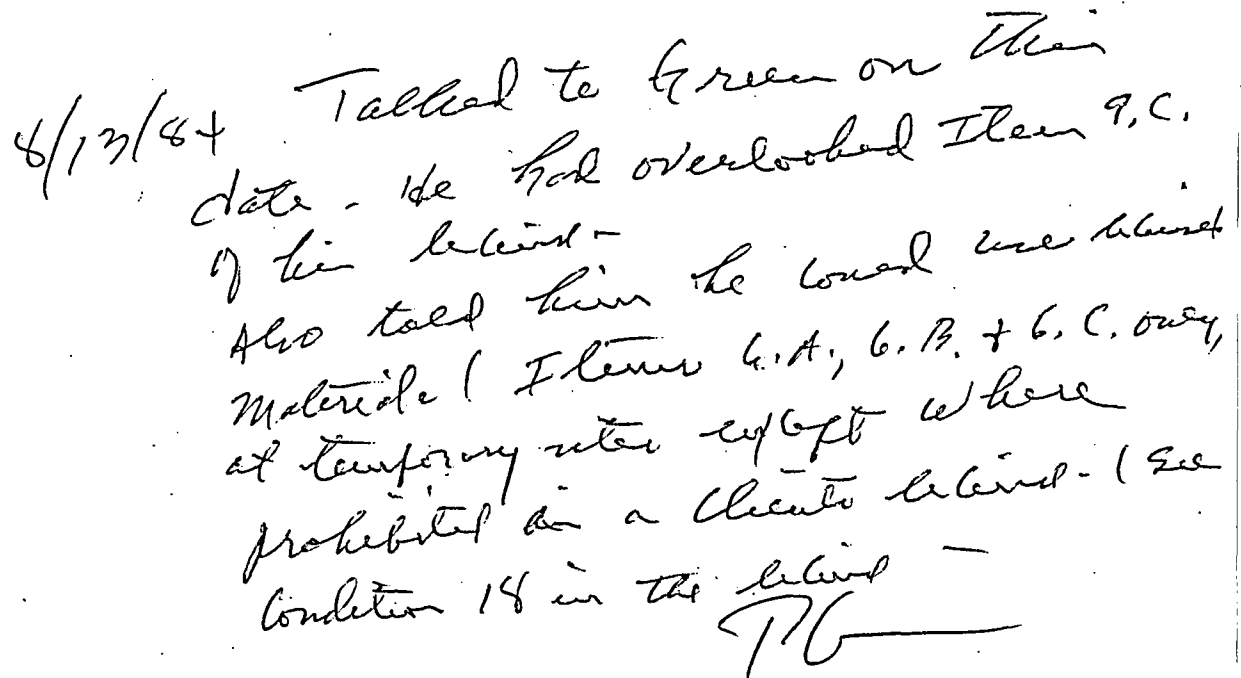 8/13/84 Talked to Green on this
date - He had overlooked Item 9.C.
of his license -
Also told him he could use licensed
Materials ( Items 6.A., 6.B. + 6.C. only,
at temporary sites except where
prohibited in a Clients license - ( See
Condition 18 in the license -